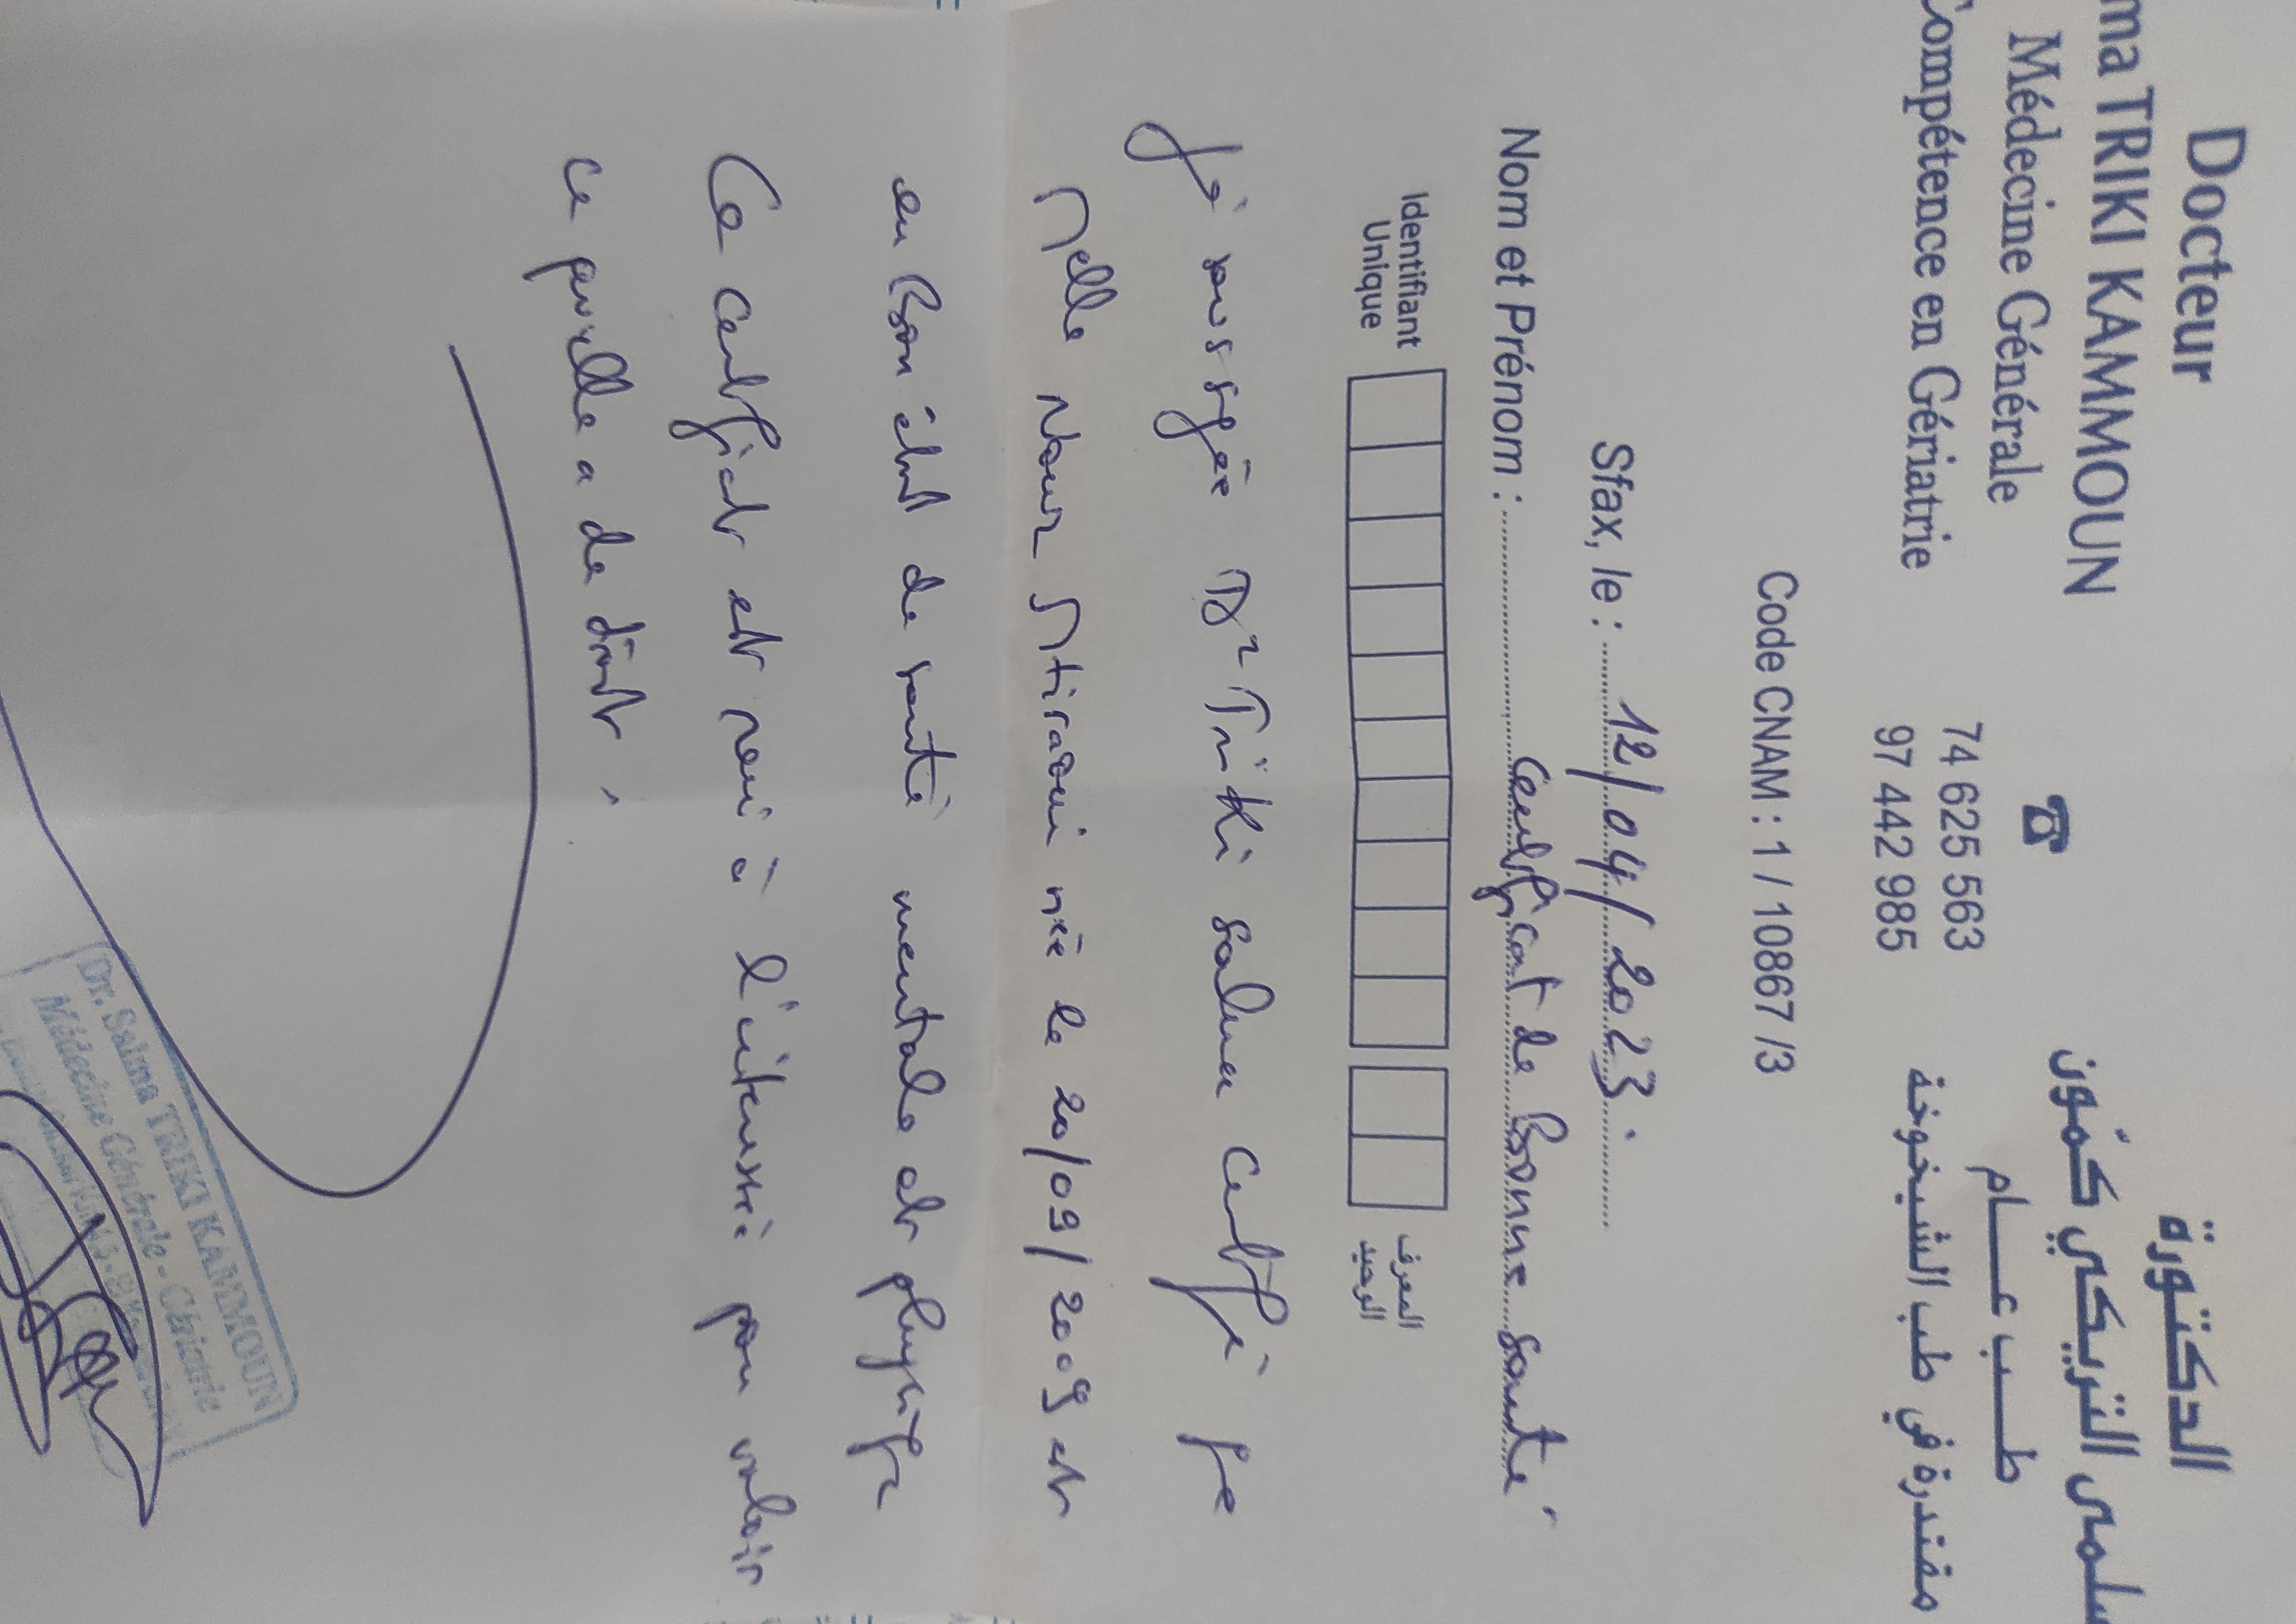 Docteur
ma TRIKI KAMMOUN
Médecine Générale
Compétence en Gériatrie
74 625 563
97 442 985
الدكتورة
سلمى التريكي كمّون
طــب عــــام
مقتدرة في طب الشيخوخة
Code CNAM : 1 / 10867 /3
Sfax, le : 12/04/2023.
Nom et Prénom : Certificat de Bonne santé
Identifiant Unique المعرف الوحيد
Je soussignée Dr Triki Salma certifie que
Melle Nour Stiraoui née le 20/09/2009 est
en Bon état de santé mentale et physique
Ce certificat est remis à l'intéressée pour valoir
ce que de droit.
Dr. Salma TRIKI KAMMOUN
Médecine Générale - Gériatrie